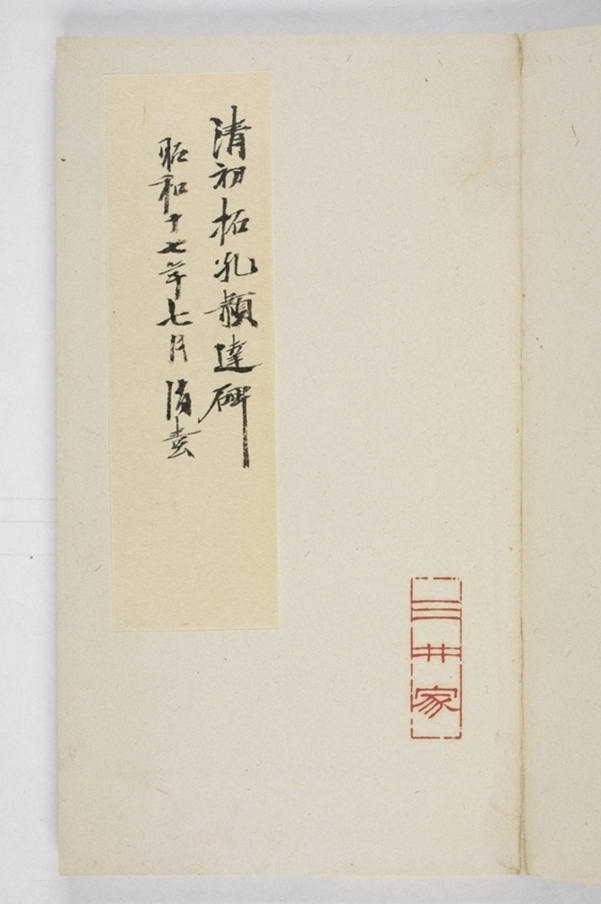 清初拓孔頴達碑
昭和十七年七月
三井家